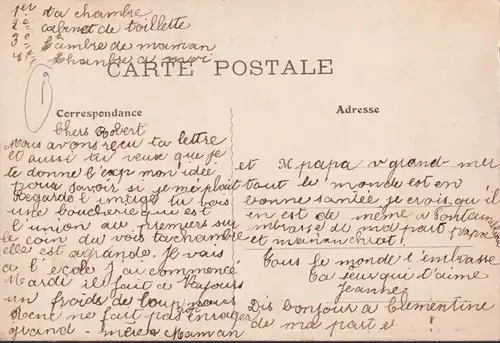 1er ta chambre
2e cabinet de toillette
3e chambre de maman
4e chambre a moi
CARTE POSTALE
Correspondance
Adresse
Chers Robert
Nous avons reçu ta lettre
et aussi tu veux que je
te donne l'cap mon idée
pour savoir si je me plait
Regarde l'imtige tu vois
une boucherie que est
l'union au premiers sur
le coin du vois ta chambre
elle est agrande. Je vais
a l'école J'ai commencé
Mardi il fait a Tajours
un froids de loup nous
Rene ne fait pas enrager
grand-mère Maman
et M papa v grand-mer
tout le monde est en
bonne santée je crois qu'il
en est de même a
embrasse de ma part papa
et maman
Tous le monde t'embrasse
Ta seur qui t'aime
Jeanne
Dis bonjour a Clementine
de ma part e !